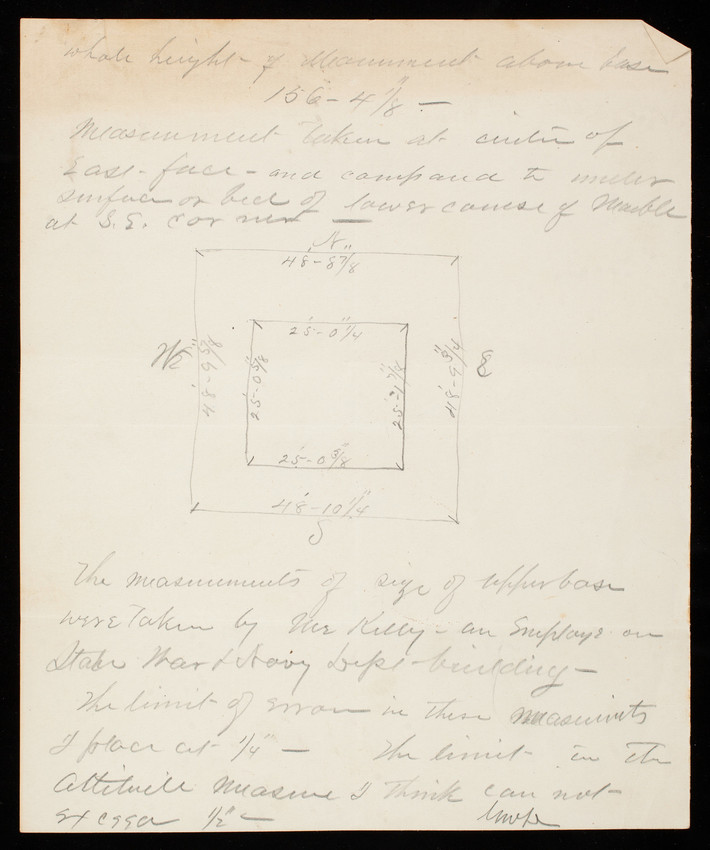 whole height of Monument above base
156'-4 1/8" —
Measurement taken at center of
East-face - and compared to under
surface or bed of lower course of Marble
at S.E. corner —
N
48'-8 7/8"
25'-0 1/4"
W
48'-9 5/8"
25'-0 5/8"
25'-1 7/8"
48'-9 3/4"
E
25'-0 3/8"
48'-10 1/4"
S
The measurements of size of upper base
were taken by Mr Kelly - an Employe on
State War & Navy Dept - building —
The limit of error in these measurements
I place at 1/4" — The limit in the
altitude measure I think can not
exceed 1/2" —